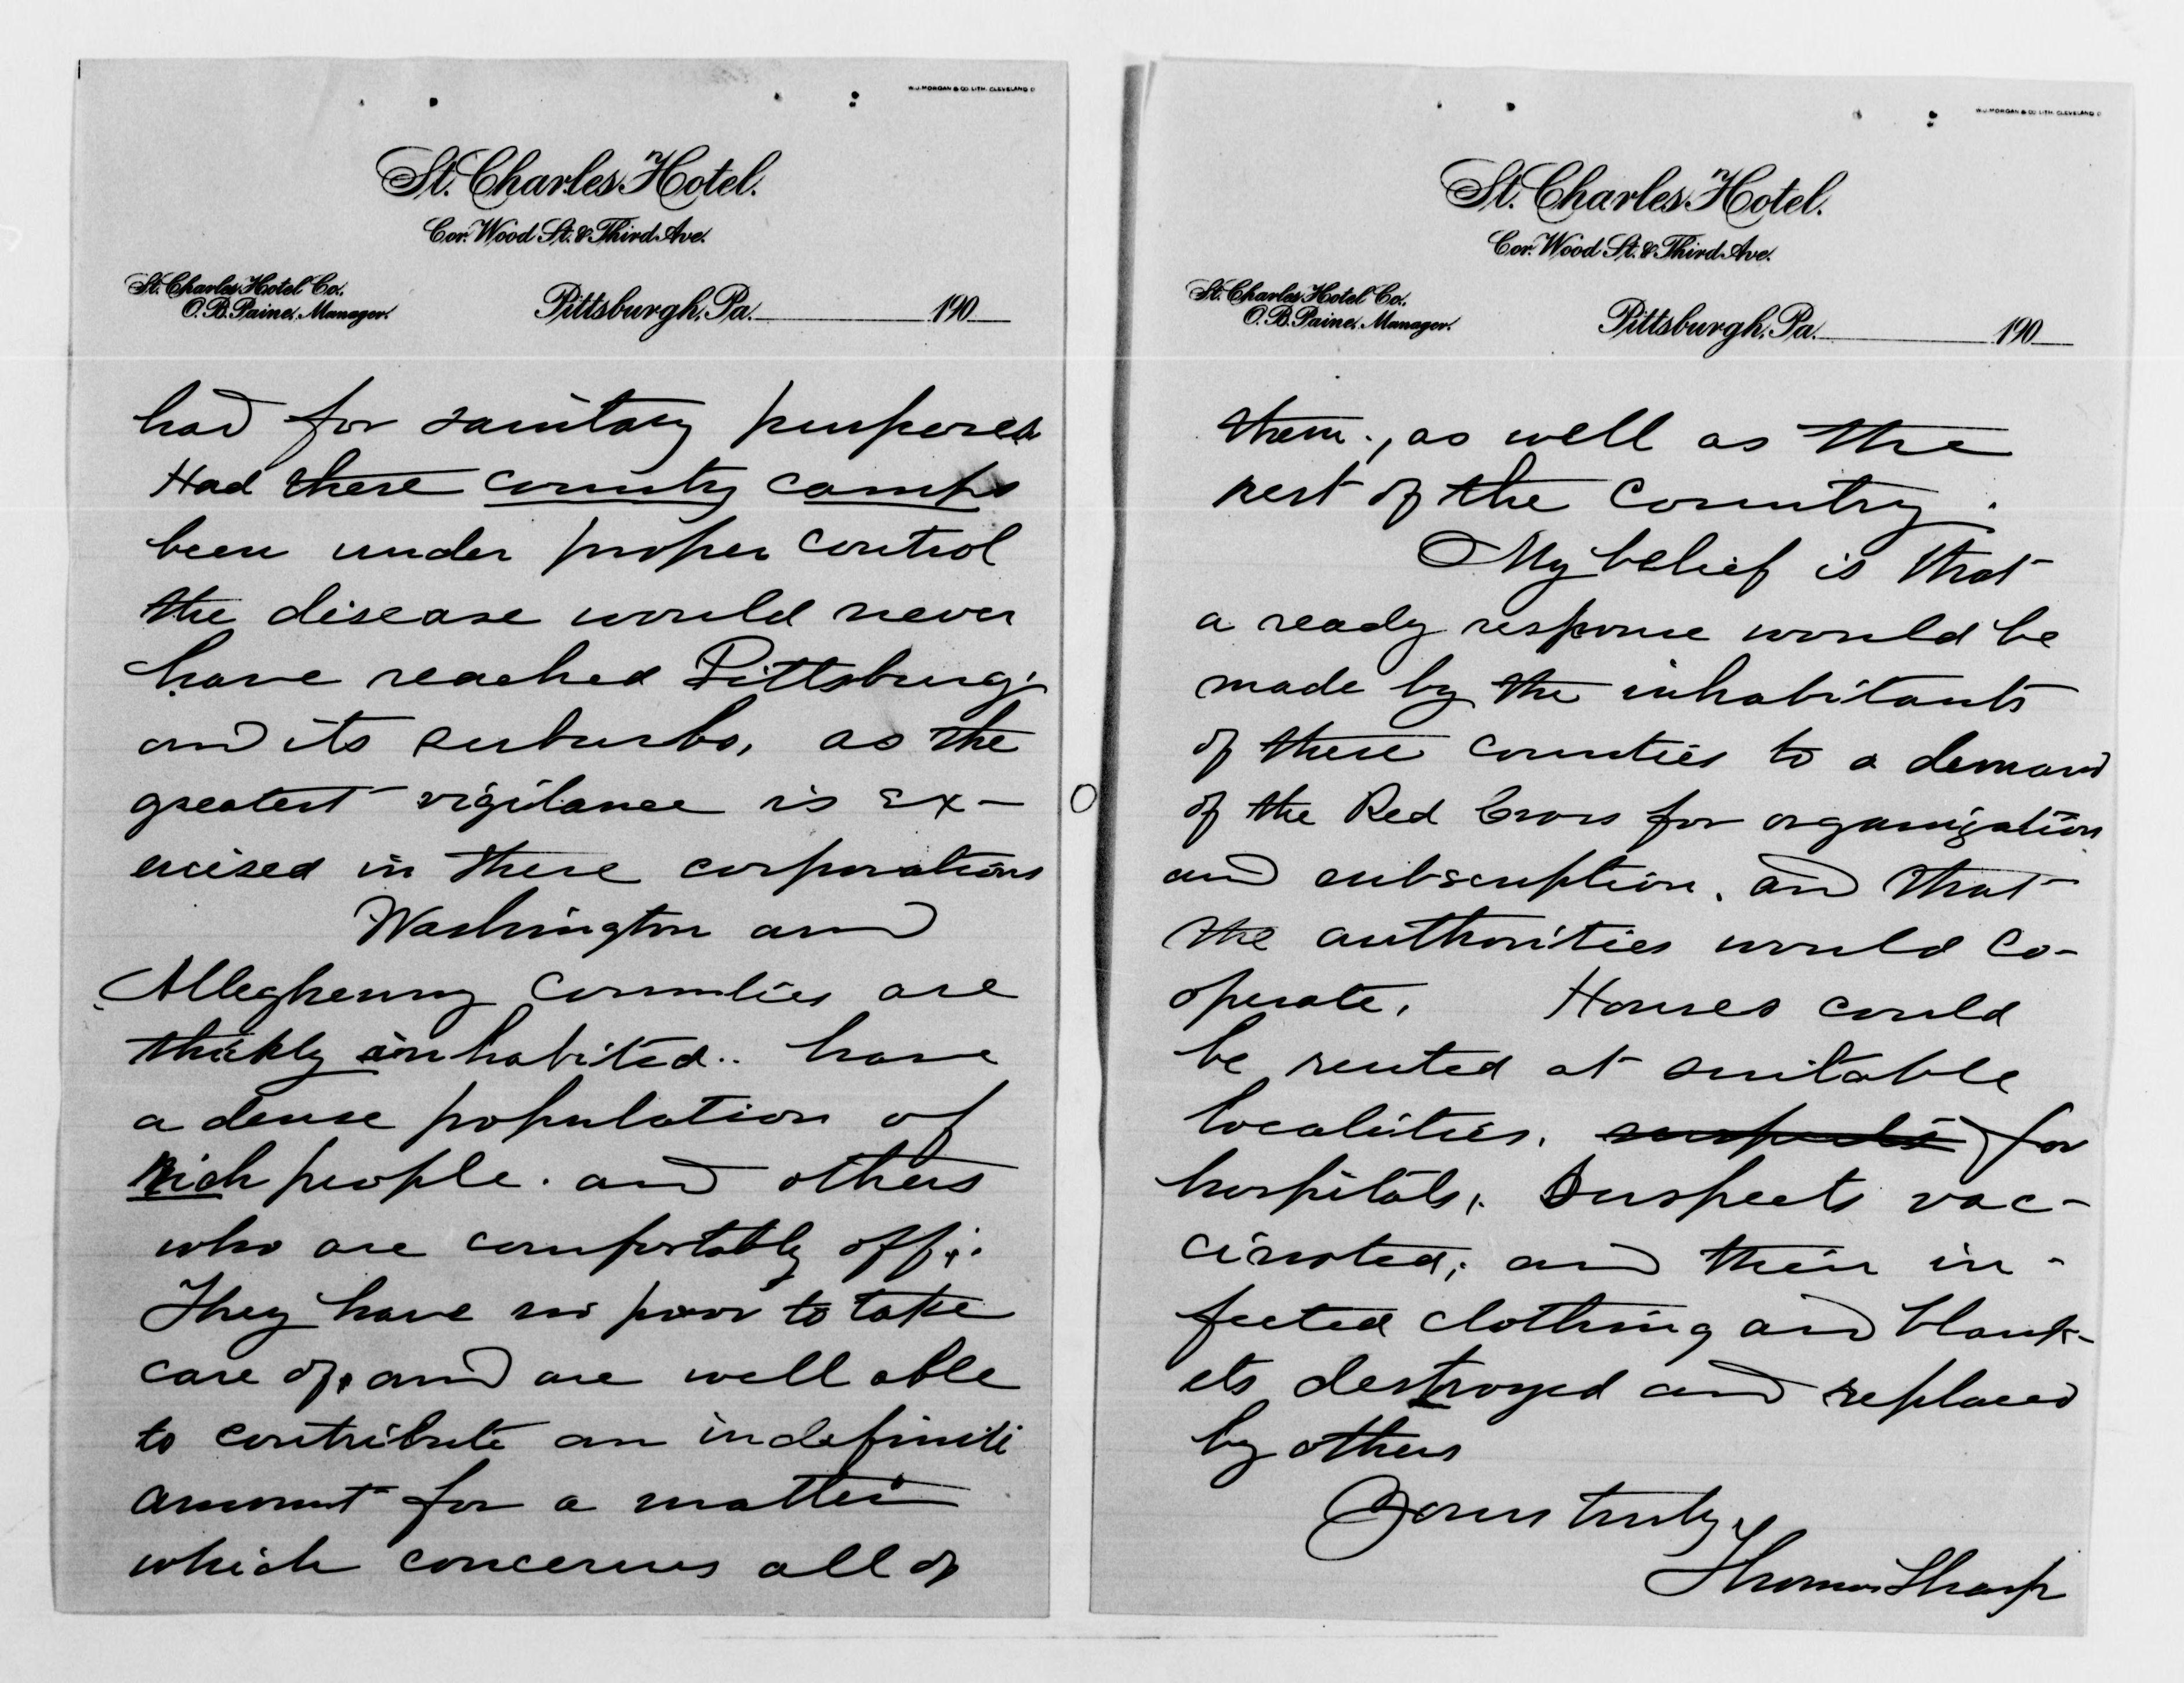 W.J. MORGAN & CO LITH. CLEVELAND O
St. Charles Hotel.
Cor. Wood St. & Third Ave.
St. Charles Hotel Co.,
O. B. Paine, Manager.
Pittsburgh, Pa. 190
had for sanitary purposes
Had these county camps
been under proper control
the disease would never
have reached Pittsburg
and its suburbs, as the
greatest vigilance is ex-
ercised in these corporations
Washington and
Allegheny Counties are
thickly inhabited.. have
a dense population of
rich people. and others
who are comfortably off.
They have no poor to take
care of, and are well able
to contribute an indefinite
amount for a matter
which concerns all of
W.J. MORGAN & CO LITH. CLEVELAND O
St. Charles Hotel.
Cor. Wood St. & Third Ave.
St. Charles Hotel Co.,
O. B. Paine, Manager.
Pittsburgh, Pa. 190
them., as well as the
rest of the Country.
My belief is that
a ready response would be
made by the inhabitants
of these counties to a demand
of the Red Cross for organization
and subscription. and that
the authorities would co-
operate. Houses could
be rented at suitable
localities. suspects for
hospitals. Suspects vac-
cinated; and their in-
fected clothing and blank-
ets destroyed and replaced
by others
Yours truly,
Thomas Sharp